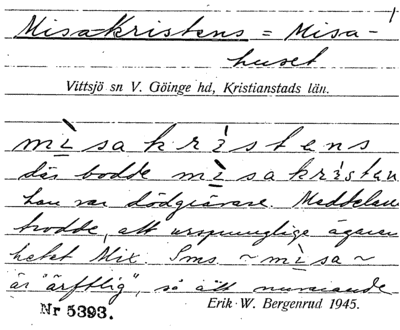 1
Misakristens = Misa-
huset
Vittsjö sn V. Göinge hd, Kristianstads län.
mìsakrìstens
där bodde mìsakrìstan
han var dödgrävare. Meddelaren
trodde, att ursprunglige ägaren
hetat Mix. Sms. ~mìsa~
är "ärftlig", så att nuvarande
Nr 5393.
Erik W. Bergenrud 1945.